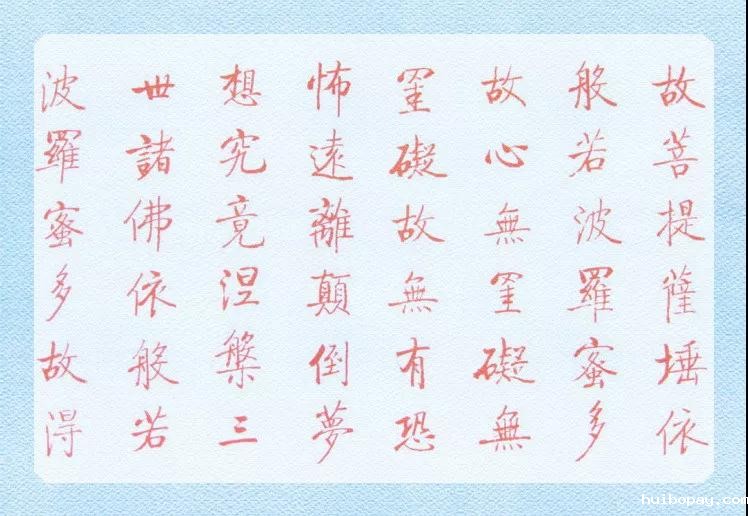 故菩提薩埵依
般若波羅蜜多
故心無罣礙無
罣礙故無有恐
怖遠離顛倒夢
想究竟涅槃三
世諸佛依般若
波羅蜜多故得
huibopay.com